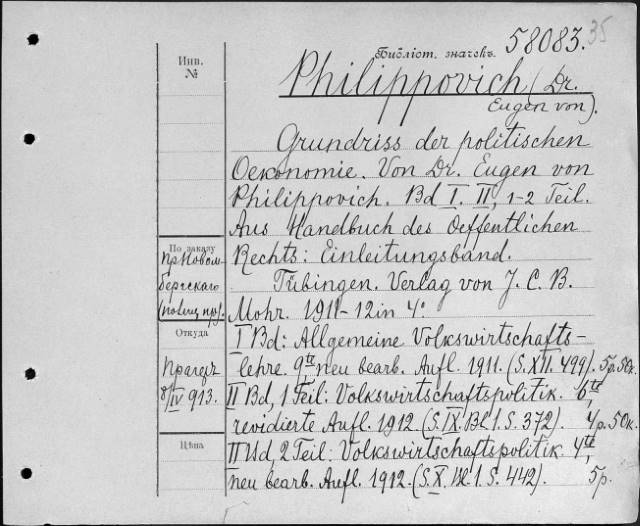 Библіот. значекъ 58083. 35
Инв.
№
Philippovich (Dr.
Eugen von).
Grundriss der politischen
Oekonomie. Von Dr. Eugen von
Philippovich. Bd I. II, 1-2 Teil.
Aus Handbuch des Oeffentlichen
Rechts: Einleitungsband.
Tübingen. Verlag von J. C. B.
Mohr. 1911-12 in 4º
По заказу
пр Новом-
бергскаго
Откуда
Прагеръ
8/IV 913.
Цѣна
I Bd: Allgemeine Volkswirtschafts-
lehre. 9te neu bearb. Aufl. 1911. (S. XII. 499). 5р. 50к.
II Bd, 1 Teil: Volkswirtschaftspolitik. 6te,
revidierte Aufl. 1912 (S. IX. Bl. 1. S. 372). 4р. 50к.
II Bd, 2 Teil: Volkswirtschaftspolitik 4te,
neu bearb. Aufl. 1912. (S. X. Bl. 1. S. 442). 5р.